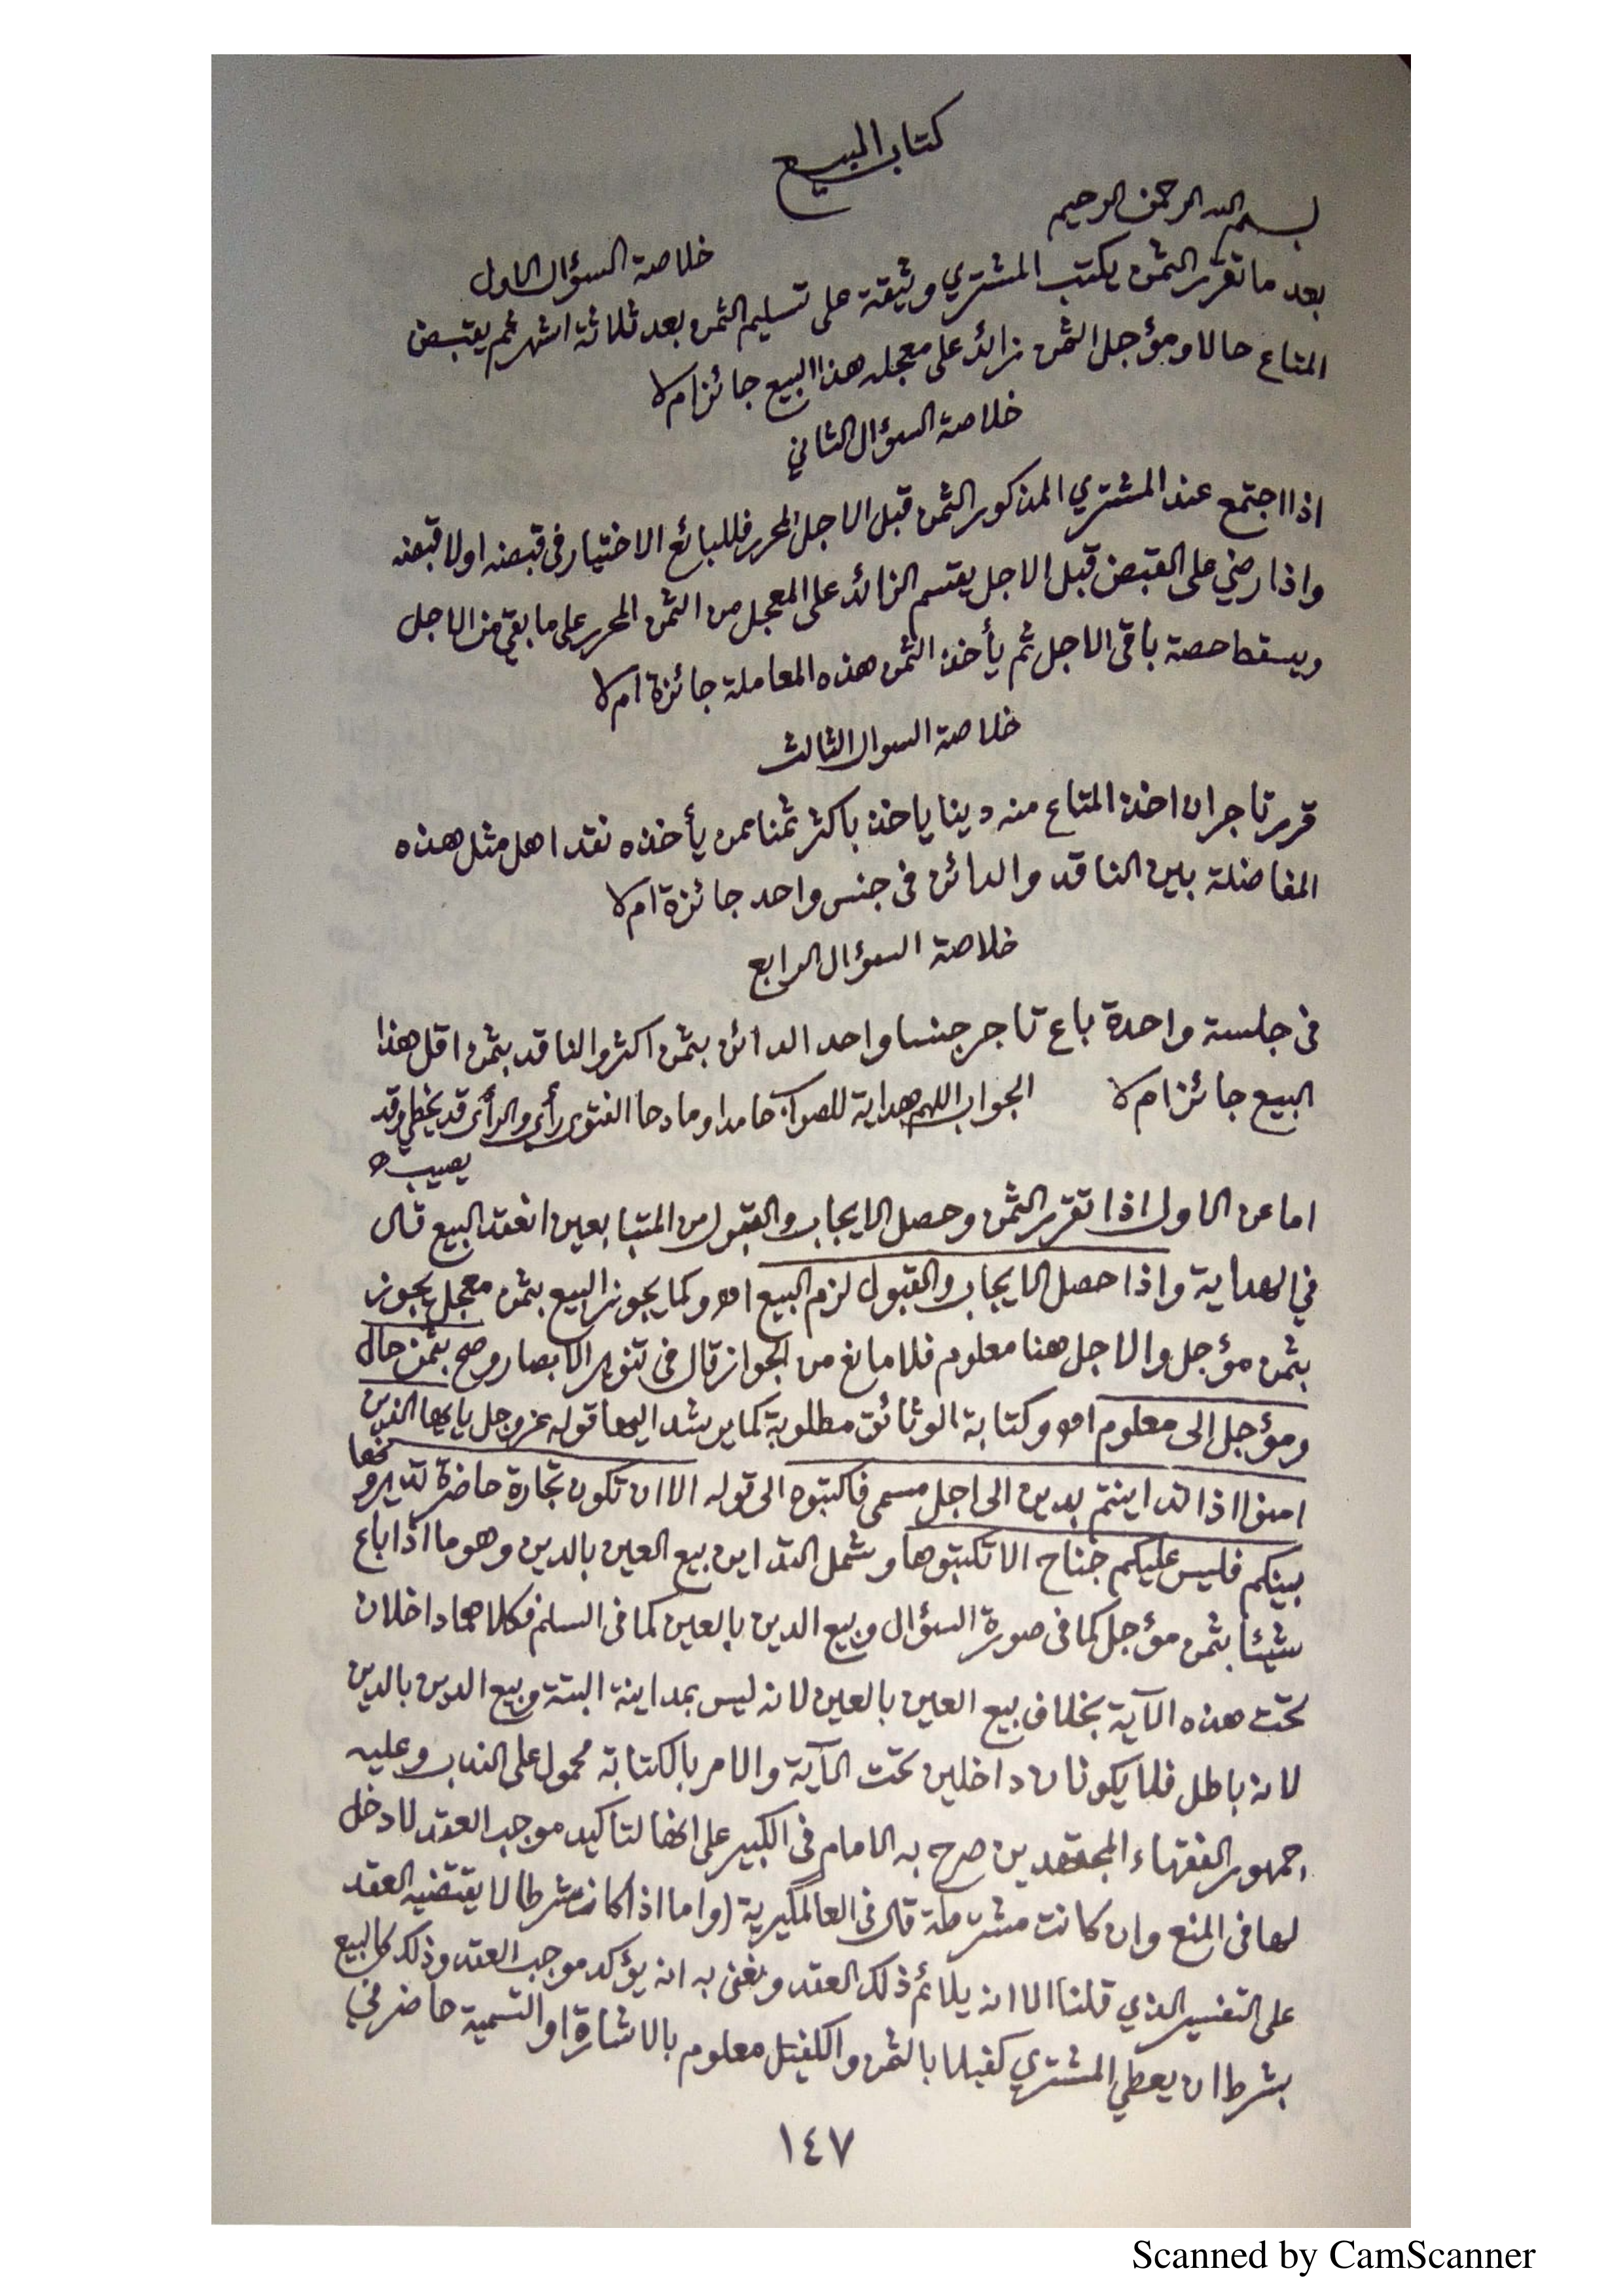 كتاب البيع
بسم الله الرحمن الرحيم
خلاصة السؤال الاول
بعد ما تقرر الثمن يكتب المشتري وثيقة على تسليم الثمن بعد ثلاثة اشهر ثم يقبض
المتاع حالا ومؤجل الثمن زائد على معجله هذا البيع جائز ام لا
خلاصة السؤال الثاني
اذا اجتمع عند المشتري المذكور الثمن قبل الاجل المحرر فللبائع الاختيار فى قبضه اولا قبضه
واذا رضي على القبض قبل الاجل يقسم الزائد على المعجل من الثمن المحرر على ما بقي من الاجل
ويسقط حصة باقى الاجل ثم يأخذ الثمن هذه المعاملة جائزة ام لا
خلاصة السوال الثالث
قرر تاجر ان اخذ المتاع منه دينا ياخذ باكثر ثمنا ممن يأخذه نقدا هل مثل هذه
المفاضلة بين الناقد والدائن فى جنس واحد جائزة ام لا
خلاصة السؤال الرابع
فى جلسة واحدة باع تاجر جنسا واحد الدائن بثمن اكثر والناقد بثمن اقل هذا
البيع جائز ام لا الجواب اللهم هداية للصواب حامدا ومادحا الفتوى رأي والرأى قد يخطي وقد
يصيب ه
اما عن الاول اذا تقرر الثمن وحصل الايجاب والقبول من المتبايعين انعقد البيع قال
في الهداية واذا حصل الايجاب والقبول لزم البيع اه وكما يجوز البيع بثمن معجل يجوز
بثمن مؤجل والاجل هنا معلوم فلا مانع من الجواز قال فى تنوير الابصار وصح بثمن حال
ومؤجل الى معلوم اه وكتابة الوثائق مطلوبة كما يرشد اليها قوله عز وجل يايها الذين
امنوا اذا تداينتم بدين الى اجل مسمى فاكتبوه الى قوله الا ان تكون تجارة حاضرة تديرونها
بينكم فليس عليكم جناح الا تكتبوها وشمل التداين بيع العين بالدين وهو ما اذا باع
شيئا بثمن مؤجل كما فى صورة السؤال وبيع الدين بالعين كما فى السلم فكلاهما داخلان
تحت هذه الآية بخلاف بيع العين بالعين لانه ليس بمداينة البتة وبيع الدين بالدين
لانه باطل فلا يكونان داخلين تحت الآية والامر بالكتابة محمول على الندب وعليه
جمهور الفقهاء المجتهدين صرح به الامام فى الكبير على انها لتاكيد موجب العقد لا دخل
لها فى المنع وان كانت مشترطة قال فى العالمگيرية (واما اذا كان شرطا لا يقتضيه العقد
على التفسير الذي قلنا الا انه يلائم ذلك العقد ونعنى به انه يؤكد موجب العقد وذلك كالبيع
بشرط ان يعطي المشتري كفيلا بالثمن والكفيل معلوم بالاشارة او التسمية حاضر في
١٤٧
Scanned by CamScanner